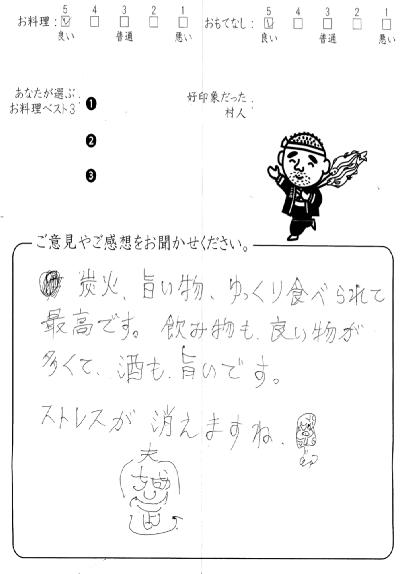 5 4 3 2 1
お料理：
良い 普通 悪い
5 4 3 2 1
おもてなし：
良い 普通 悪い
あなたが選ぶ
お料理ベスト3：
❶
❷
❸
好印象だった
村人：
ご意見やご感想をお聞かせください。
炭火、旨い物、ゆっくり食べられて
最高です。飲み物も、良い物が
多くて、酒も、旨いです。
ストレスが 消えますね。